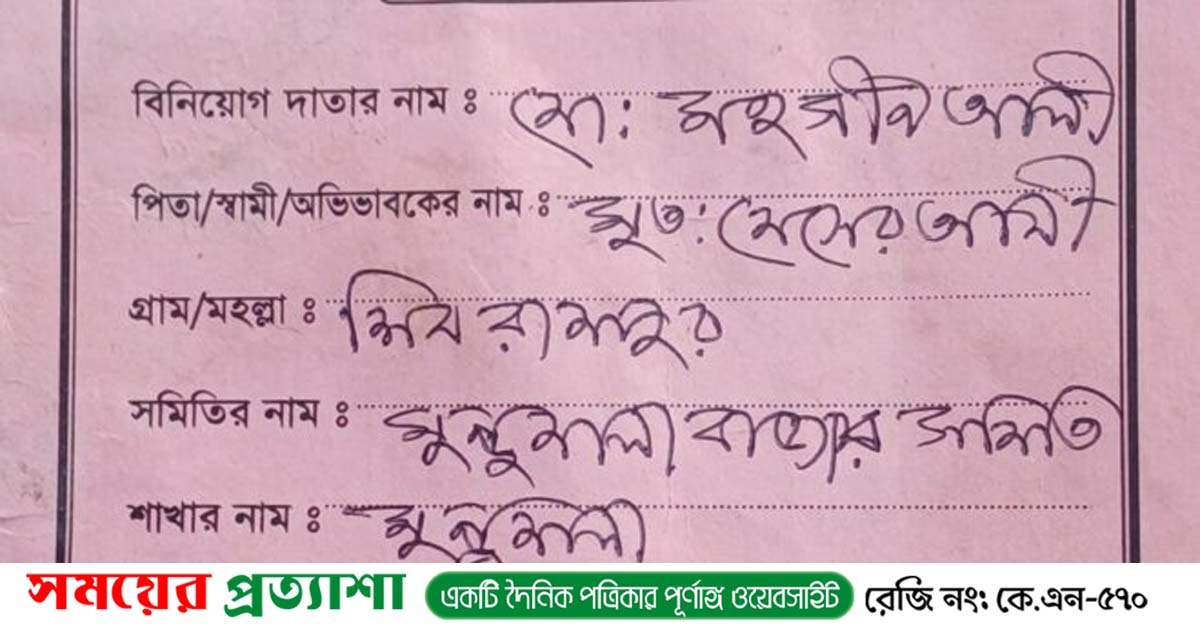 বিনিয়োগ দাতার নাম ঃ মো: মহসীন আলী
পিতা/স্বামী/অভিভাবকের নাম ঃ মৃত: মেসের আলী
গ্রাম/মহল্লা ঃ শিবরামপুর
সমিতির নাম ঃ মুন্ডুমালা বাজার সমিতি
শাখার নাম ঃ মুন্ডুমালা
সময়ের প্রত্যাশা একটি দৈনিক পত্রিকার পূর্ণাঙ্গ ওয়েবসাইট রেজি নং: কে.এন-৫৭০